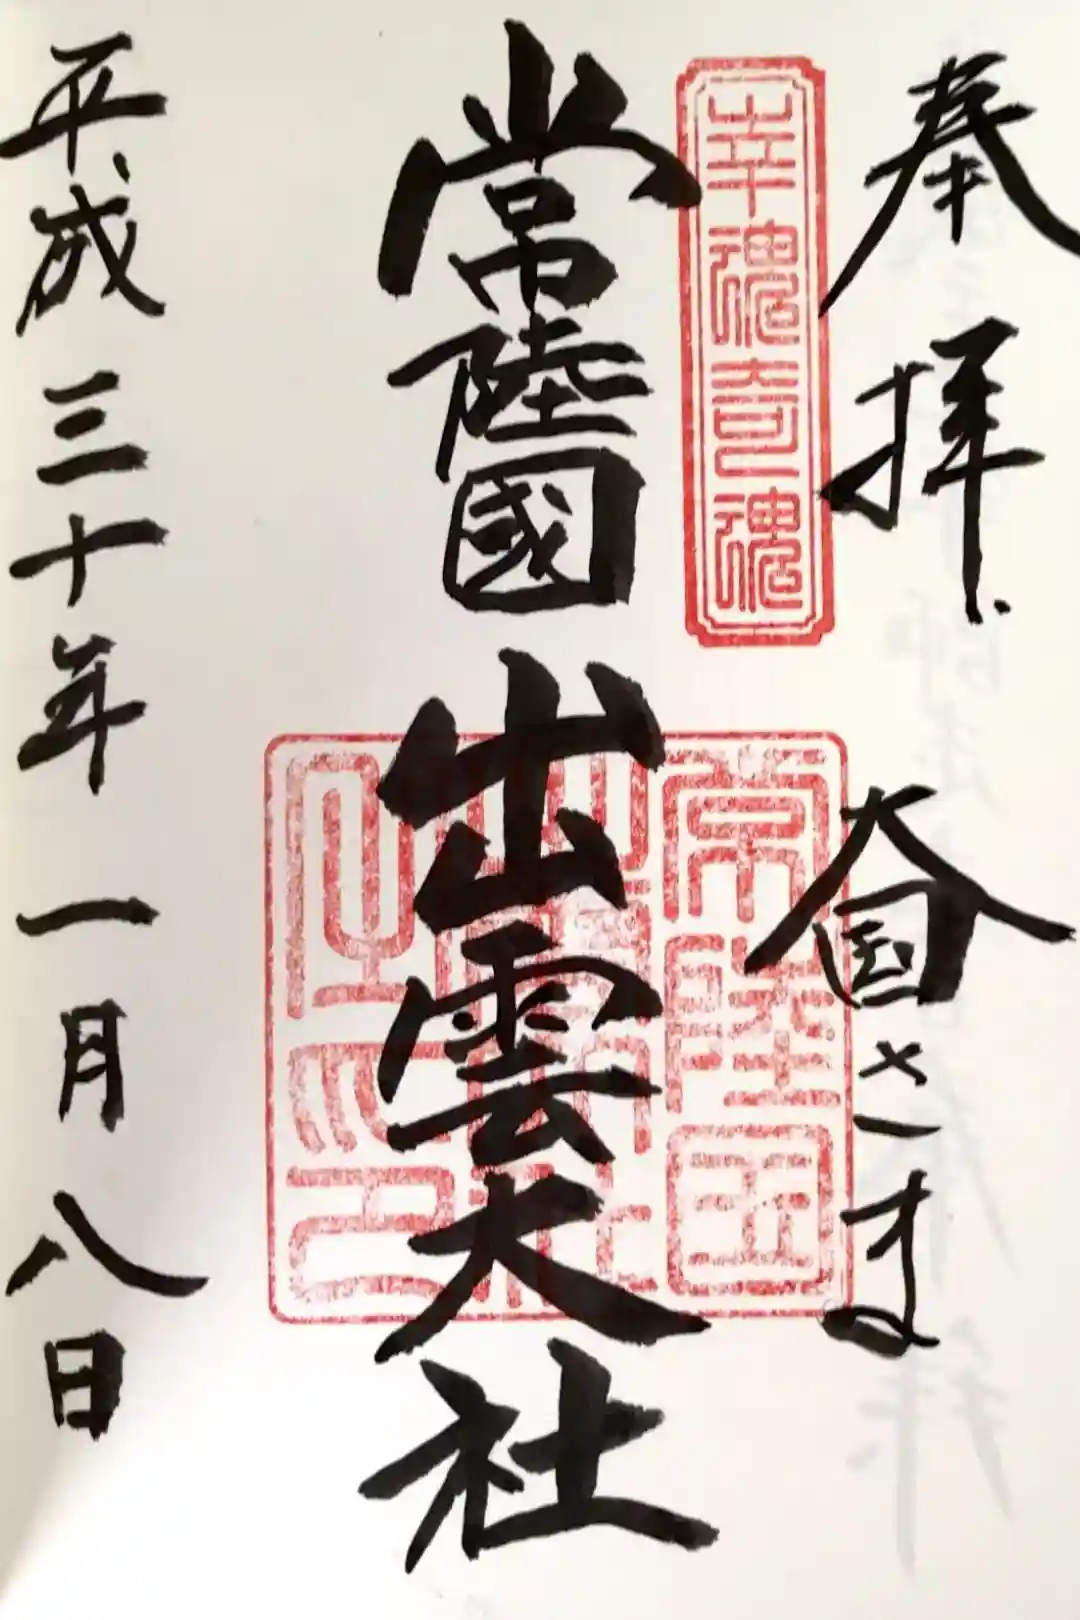 奉拝 大国さま
幸魂奇魂
常陸國出雲大社
常陸国
平成三十年一月八日